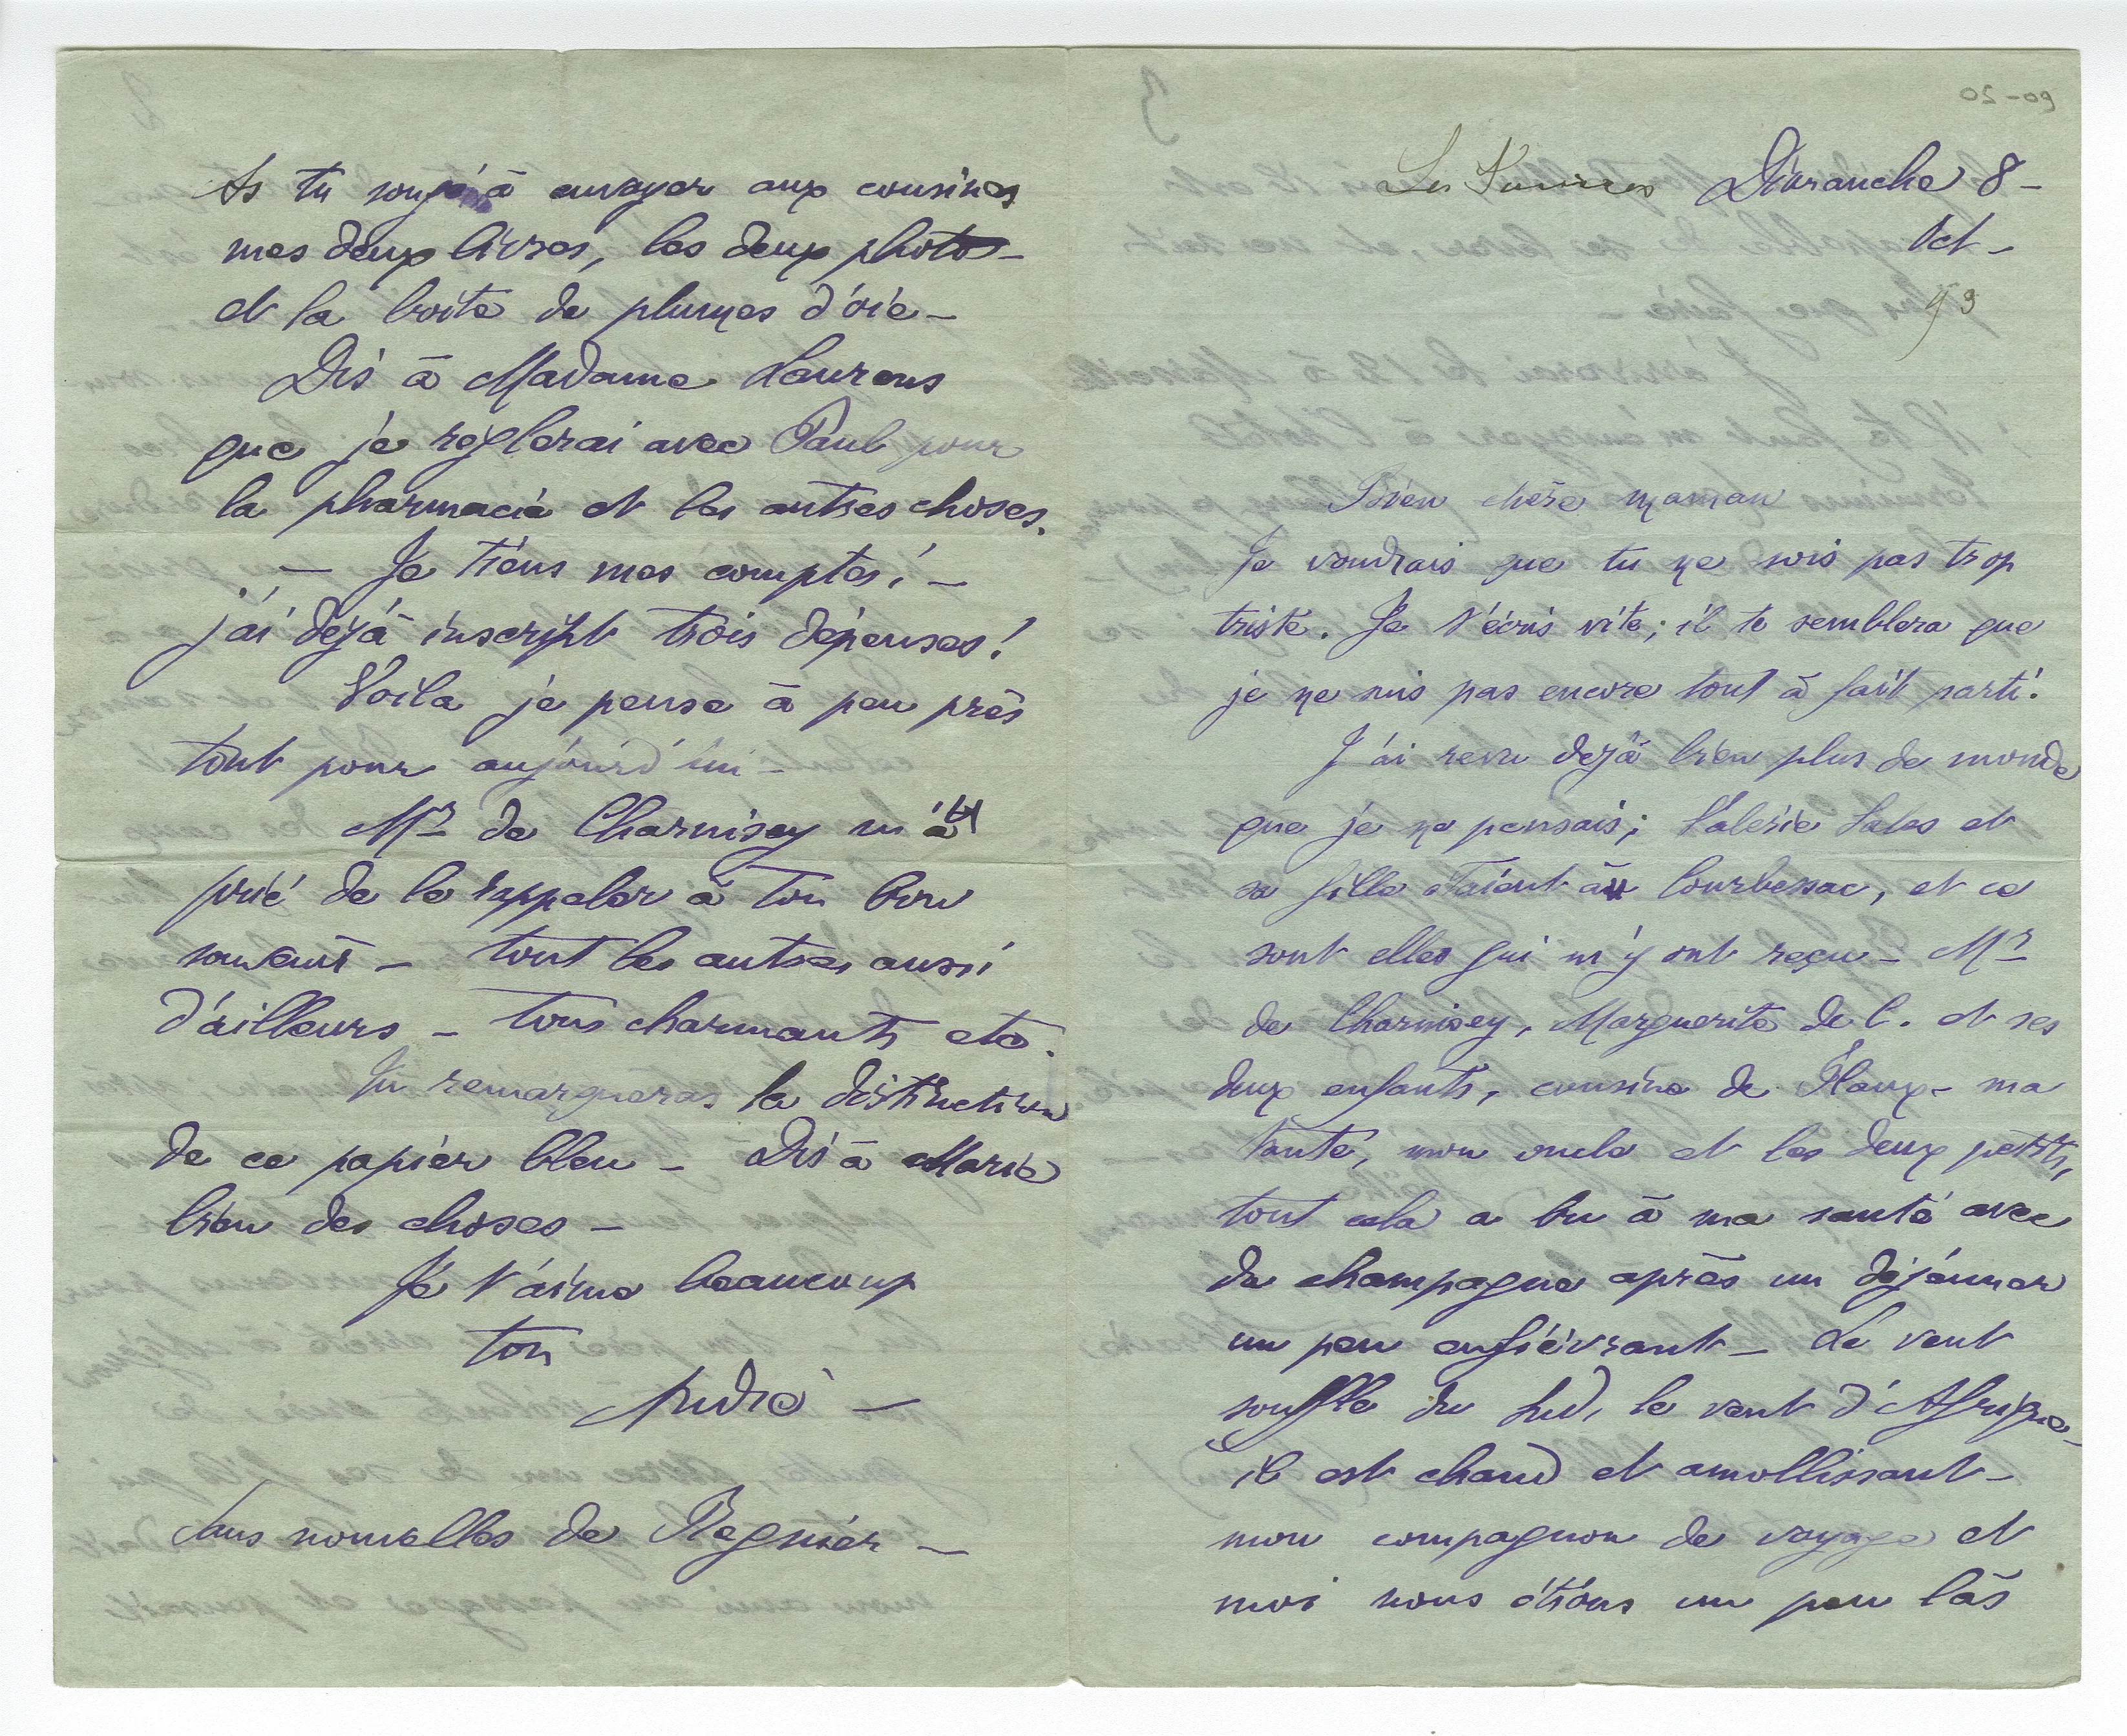 Dimanche 8 -
Oct -
93
Bien chère maman
Je voudrais que tu ne sois pas trop
triste. Je t'écris vite; il te semblera que
je ne suis pas encore tout à fait parti.
J'ai revu déjà bien plus de monde
que je ne pensais; Valérie Sales et
sa fille étaient à Courbessac, et ce
sont elles qui m'y ont reçu - Mr
de Charnisey, Marguerite de C. et ses
deux enfants, cousine de Flaux - ma
tante, mon oncle et les deux petits,
tout cela a bu à ma santé avec
du champagne après un déjeuner
un peu enfiévrant - Le vent
souffle du Sud, le vent d'Afrique -
il est chaud et amollissant -
mon compagnon de voyage et
moi nous étions un peu las
As tu songé à envoyer aux cousines
mes deux livres, les deux photos -
et la boite de plumes d'oie -
Dis à Madame Laurens
que je reglerai avec Paul pour
la pharmacie et les autres choses.
- Je tiens mes comptes! -
j'ai déjà inscript trois dépenses!
Voila je pense à peu près
tout pour aujourd'hui -
Mr de Charnisey m'a
prié de le rappeler à ton bon
souvenir - tout les autres aussi
d'ailleurs - tous charmants etc.
Tu remarqueras la distinction
de ce papier bleu - Dis à Marie
bien des choses -
Je t'aime beaucoup
ton
André -
Sans nouvelles de Regnier -